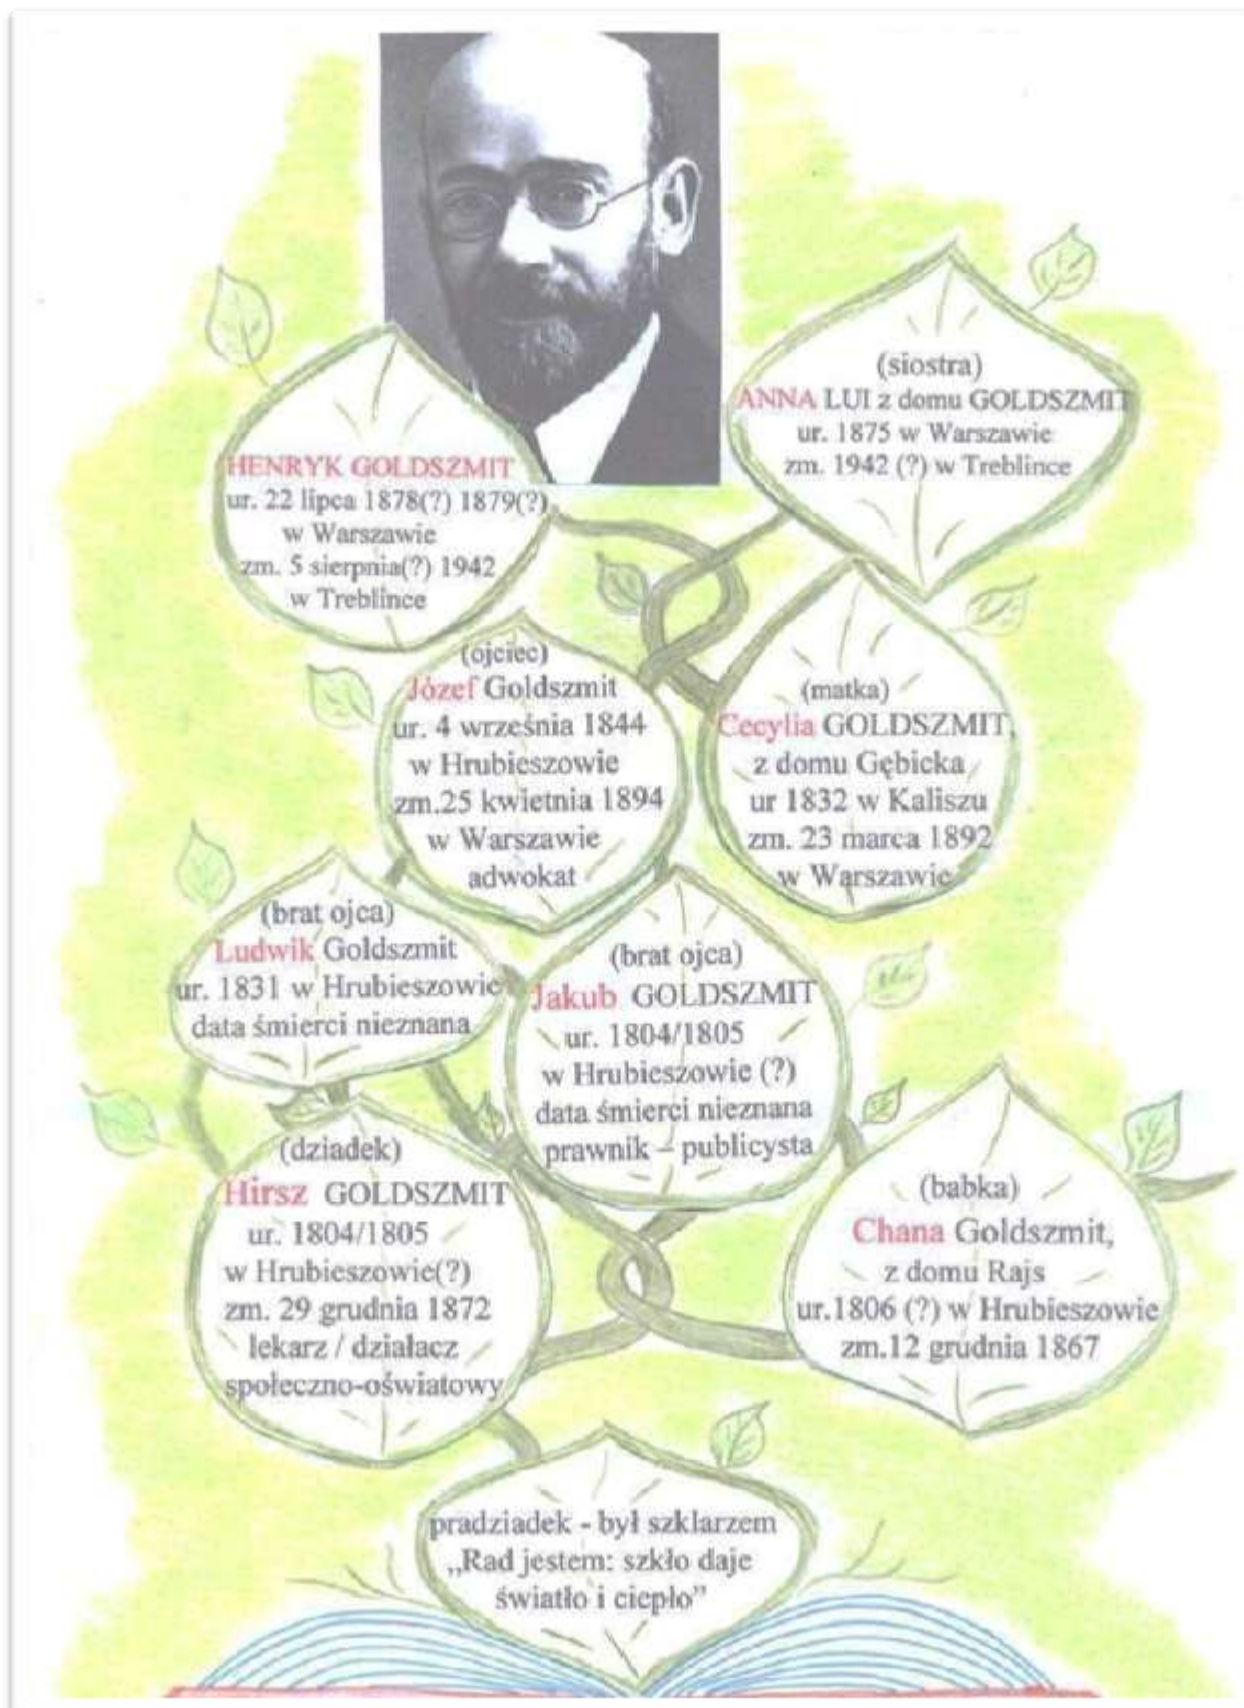 HENRYK GOLDSZMIT
ur. 22 lipca 1878(?) 1879(?)
w Warszawie
zm. 5 sierpnia(?) 1942
w Treblince
(siostra)
ANNA LUI z domu GOLDSZMIT
ur. 1875 w Warszawie
zm. 1942 (?) w Treblince
(ojciec)
Józef Goldszmit
ur. 4 września 1844
w Hrubieszowie
zm.25 kwietnia 1894
w Warszawie
adwokat
(matka)
Cecylia GOLDSZMIT,
z domu Gębicka
ur 1832 w Kaliszu
zm. 23 marca 1892
w Warszawie
(brat ojca)
Ludwik Goldszmit
ur. 1831 w Hrubieszowie
data śmierci nieznana
(brat ojca)
Jakub GOLDSZMIT
ur. 1804/1805
w Hrubieszowie (?)
data śmierci nieznana
prawnik – publicysta
(dziadek)
Hirsz GOLDSZMIT
ur. 1804/1805
w Hrubieszowie(?)
zm. 29 grudnia 1872
lekarz / działacz
społeczno-oświatowy
(babka)
Chana Goldszmit,
z domu Rajs
ur.1806 (?) w Hrubieszowie
zm.12 grudnia 1867
pradziadek - był szklarzem
„Rad jestem: szkło daje
światło i ciepło”